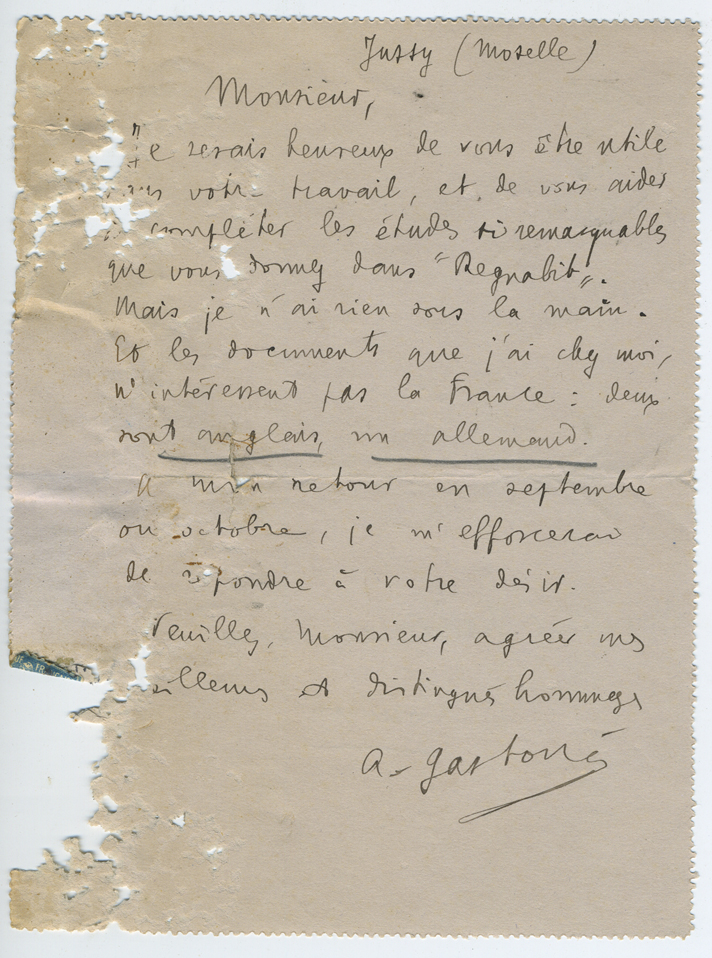 Jussy (Moselle)
Monsieur,
Je serais heureux de vous être utile
votre travail, et de vous aider
compléter les études si remarquables
que vous donnez dans "Regnabit".
Mais je n'ai rien sous la main.
Et les documents que j'ai chez moi,
n'intéressent pas la France : deux
sont anglais, un allemand.
A mon retour en septembre
ou octobre, je m'efforcerai
de répondre à votre désir.
Veuillez, Monsieur, agréer mes
et distingués hommages
A. Gastoué